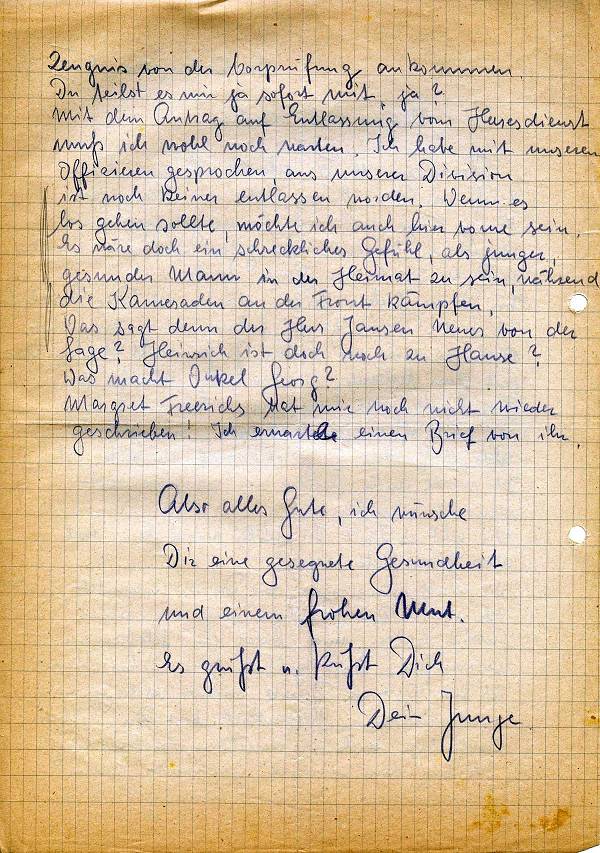 Zeugnis von der Vorprüfung ankommen.
Du teilst es mir ja sofort mit, ja?
Mit dem Antrag auf Entlassung vom Heeresdienst
muß ich wohl noch warten. Ich habe mit unseren
Offizieren gesprochen, aus unserer Division
ist noch keiner entlassen worden. Wenn es
los gehen sollte, möchte ich auch hier vorne sein.
Es wäre doch ein schreckliches Gefühl, als junger,
gesunder Mann in der Heimat zu sein, während
die Kameraden an der Front kämpfen.
Was sagt denn der Herr Jansen Neues von der
Lage? Heinrich ist doch noch zu Hause?
Was macht Onkel Georg?
Margret Freerichs hat mir noch nicht wieder
geschrieben! Ich erwarte einen Brief von ihr.
Also alles Gute, ich wünsche
Dir eine gesegnete Gesundheit
und einem frohen Mut.
Es grüßt u. küßt Dich
Dein Junge